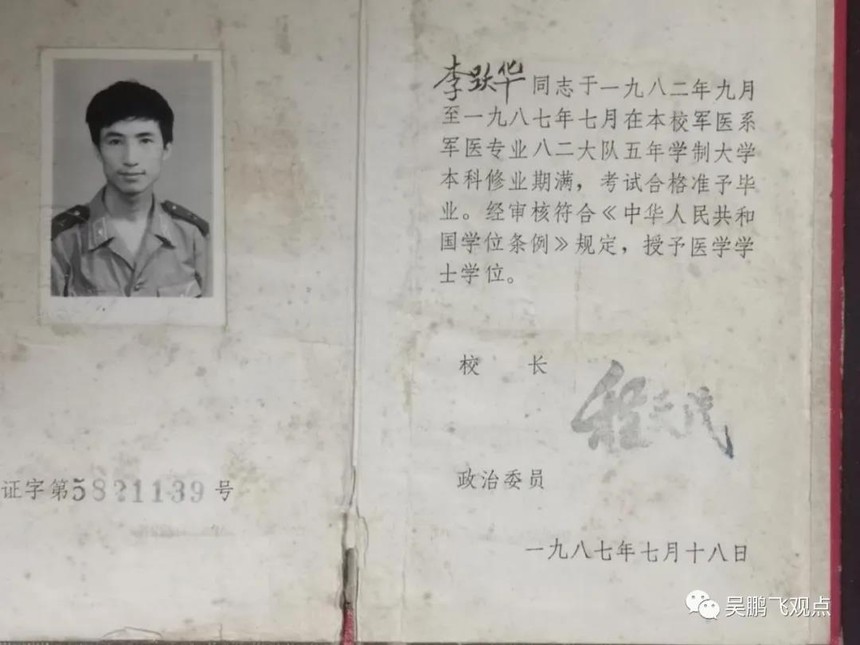 证字第5821139号
李跃华同志于一九八二年九月
至一九八七年七月在本校军医系
军医专业八二大队五年学制大学
本科修业期满，考试合格准予毕
业。经审核符合《中华人民共和
国学位条例》规定，授予医学学
士学位。
校 长 程天民
政治委员
一九八七年七月十八日
吴鹏飞观点